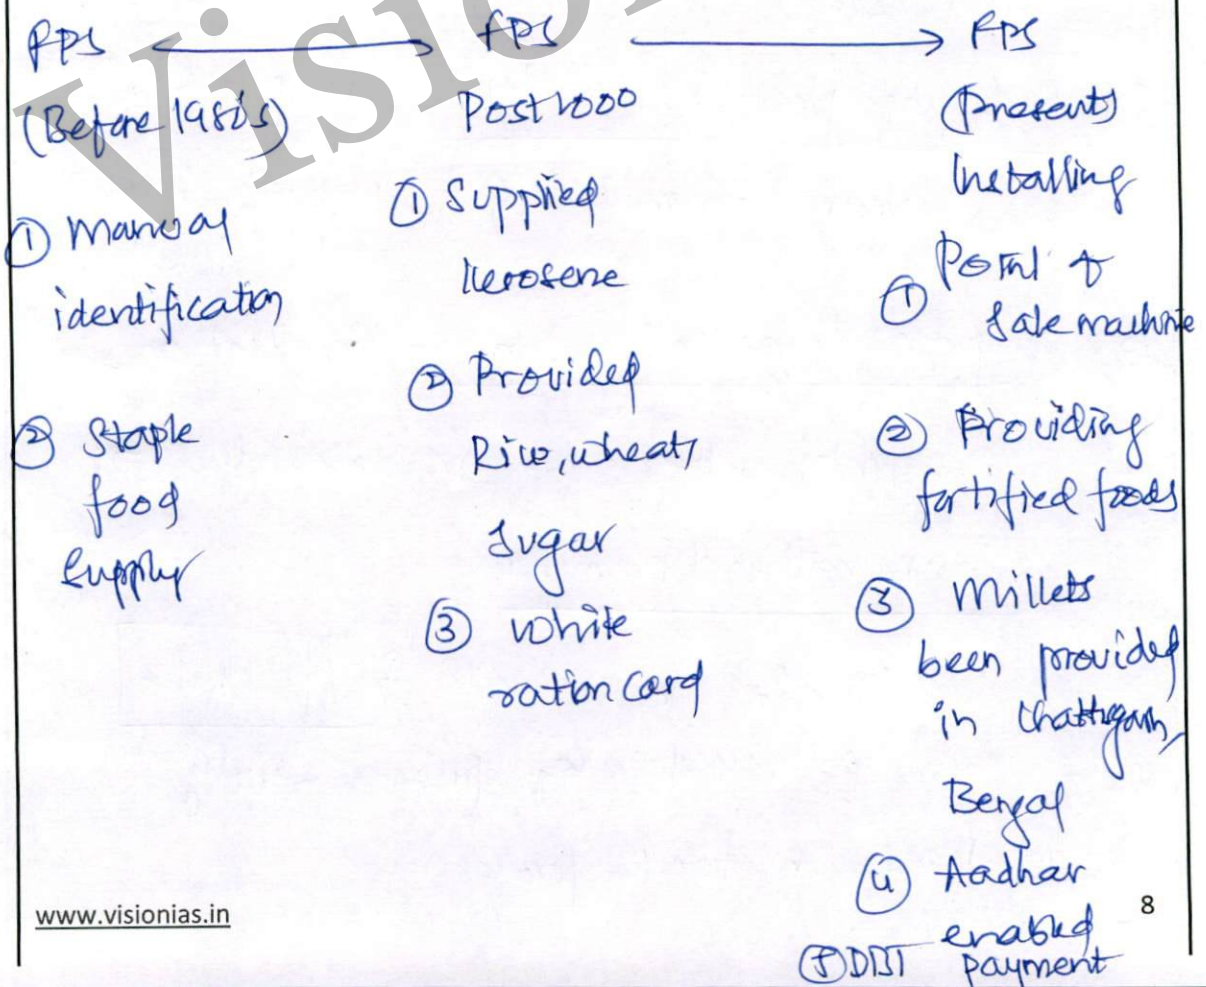 FPS ⟷ FPS ⟶ FPS
(Before 1980's)
① Manual
identification
② Staple
food
supply
Post 2000
① Supplied
kerosene
② Provided
Rice, wheat,
sugar
③ White
ration card
(Present)
Installing
① Point of
sale machine
② Providing
fortified foods
③ Millets
been provided
in Chattigarh,
Bengal
④ Aadhar
enabled
payment
⑤ DBT
www.visionias.in
8